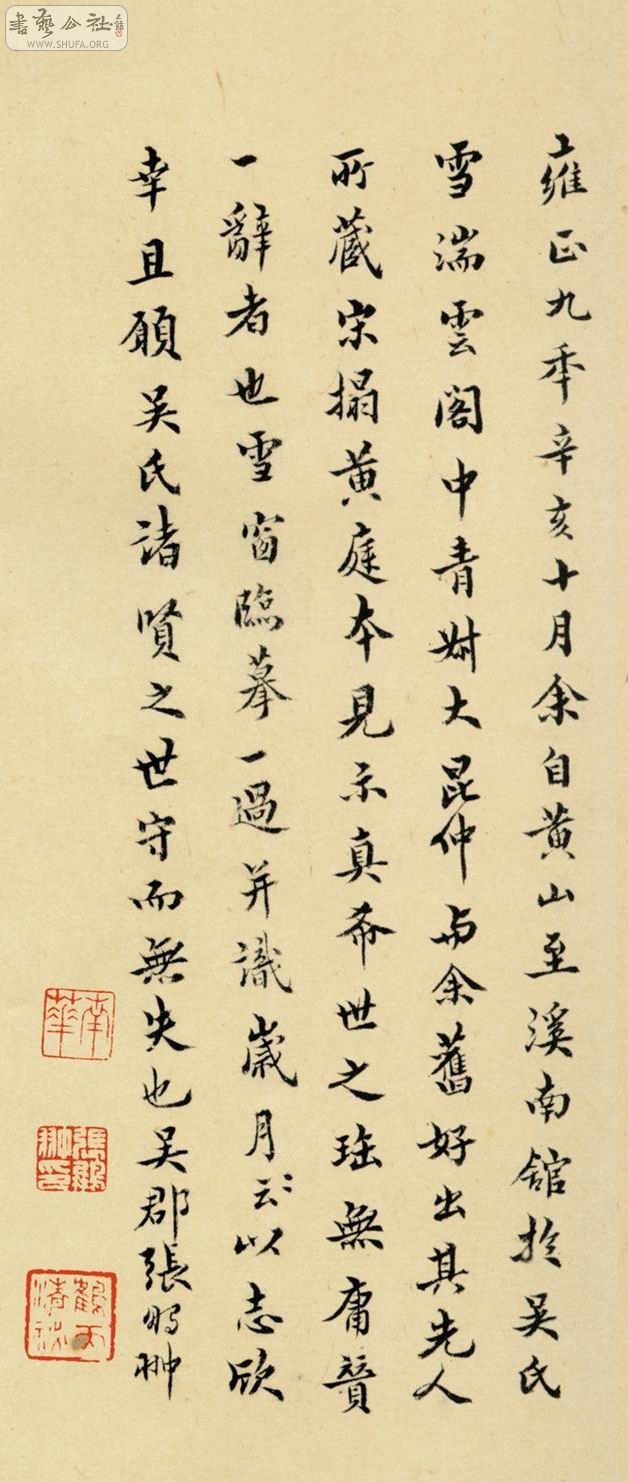 書藝公社
WWW.SHUFA.ORG
雍正九年辛亥十月余自黄山至溪南舘於吳氏
雪湍雲閣中青大昆仲与余舊好出其先人
所藏宋搨黄庭本見示真希世之珤無庸贊
一辭者也雪窗臨摹一過并識歲月云〻以志欣
幸且願吳氏諸賢之世守而無失也吳郡張鵬翀
南華
張鵬翀印